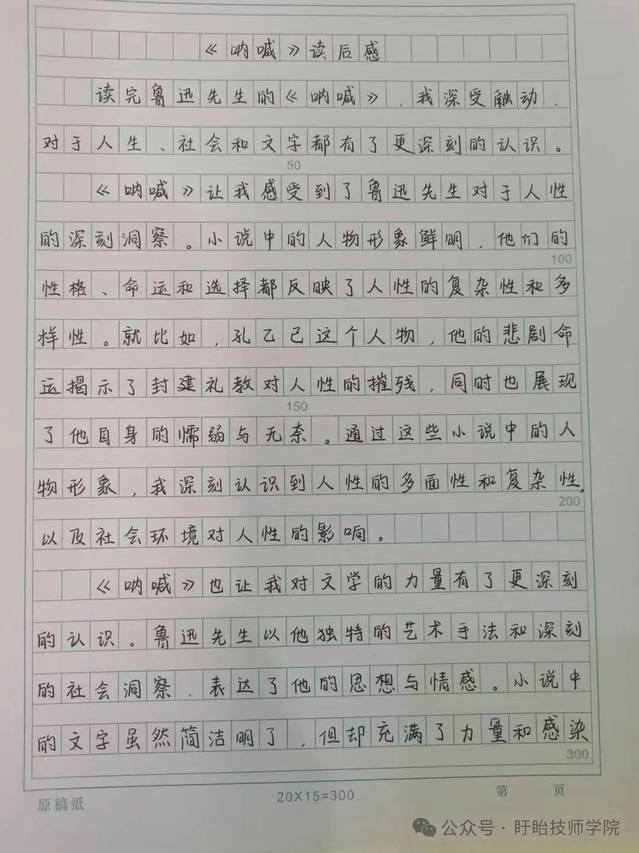 《呐喊》读后感
读完鲁迅先生的《呐喊》，我深受触动，
对于人生、社会和文字都有了更深刻的认识。
50
《呐喊》让我感受到了鲁迅先生对于人性
的深刻洞察。小说中的人物形象鲜明，他们的
100
性格、命运和选择都反映了人性的复杂性和多
样性。就比如，孔乙己这个人物，他的悲剧命
运揭示了封建礼教对人性的摧残，同时也展现
150
了他自身的懦弱与无奈。通过这些小说中的人
物形象，我深刻认识到人性的多面性和复杂性，
200
以及社会环境对人性的影响。
《呐喊》也让我对文学的力量有了更深刻
的认识。鲁迅先生以他独特的艺术手法和深刻
的社会洞察，表达了他的思想与情感。小说中
的文字虽然简洁明了，但却充满了力量和感染
300
原稿纸 20X15=300 第 页
公众号·盱眙技师学院